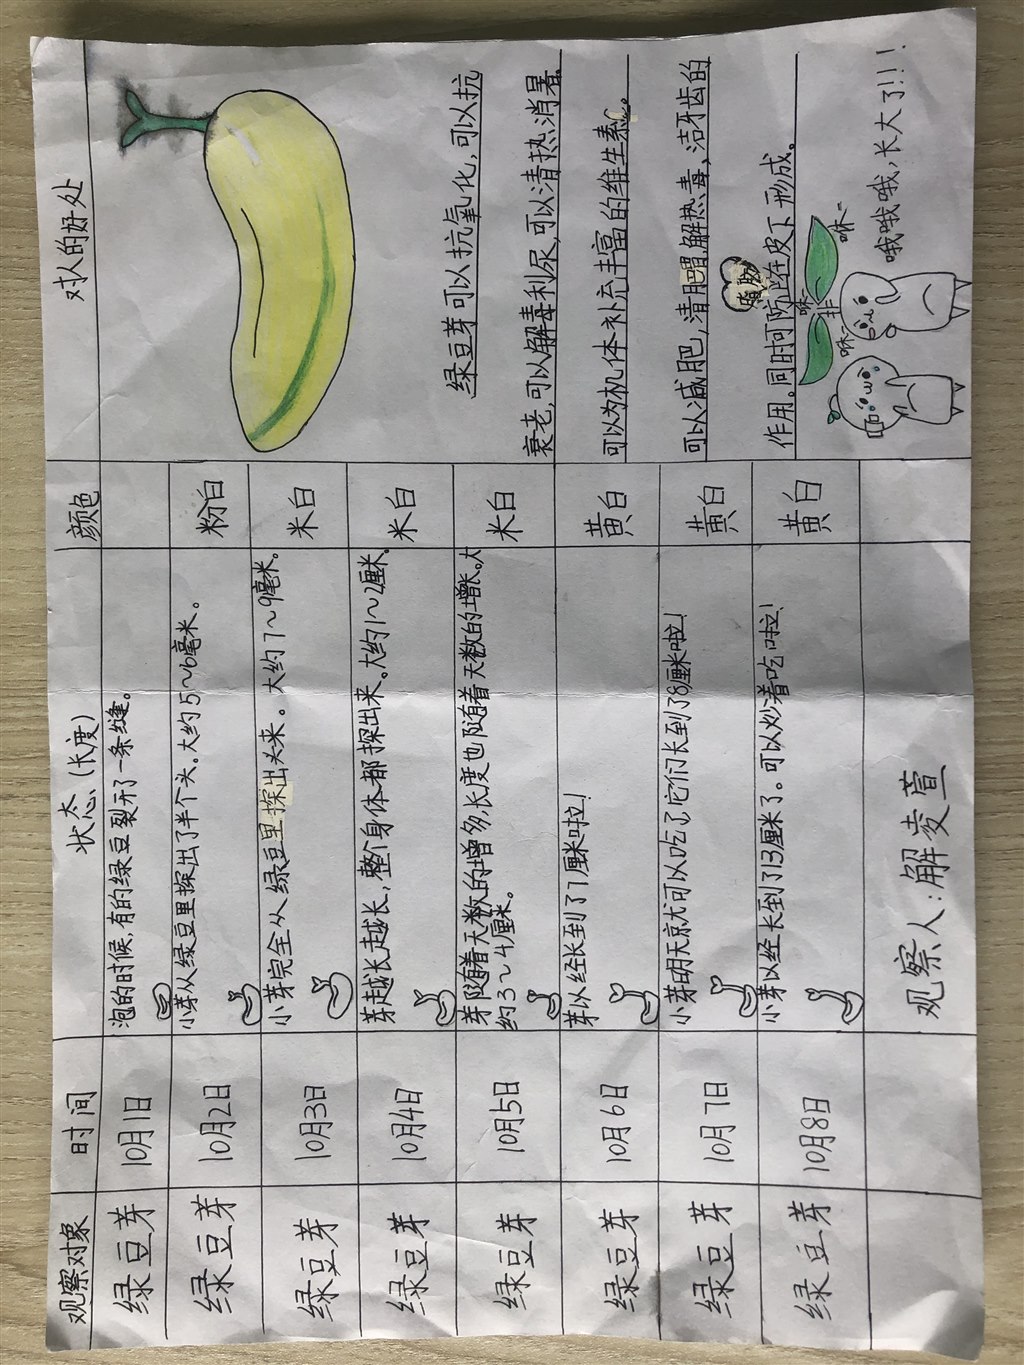 观察对象 时间 状态(长度) 颜色 对人的好处
绿豆芽 10月1日 泡的时候,有的绿豆裂开了一条缝。
绿豆芽 10月2日 小芽从绿豆里探出了半个头。大约5~6毫米。 粉白
绿豆芽 10月3日 小芽完全从绿豆里探出头来。大约7~9毫米。 米白
绿豆芽 10月4日 芽越长越长,整个身体都探出来。大约1~2厘米。 米白
绿豆芽 10月5日 芽随着天数的增多,长度也随着天数的增长。大
约3~4厘米。 米白
绿豆芽 10月6日 芽以经长到了7厘米啦! 黄白
绿豆芽 10月7日 小芽明天就可以吃了,它们长到了8厘米啦! 黄白
绿豆芽 10月8日 小芽以经长到了13厘米了。可以炒着吃啦! 黄白
绿豆芽可以抗氧化,可以抗
衰老,可以解毒利尿,可以清热消暑
可以为机体补充丰富的维生素C。
可以减肥,清肥胃解热毒,洁牙齿的
作用。同时可防止在皮下形成。
脂肪
咻~
咻~
咻~
哦哦哦,长大了!!!
观察人:解菱萱